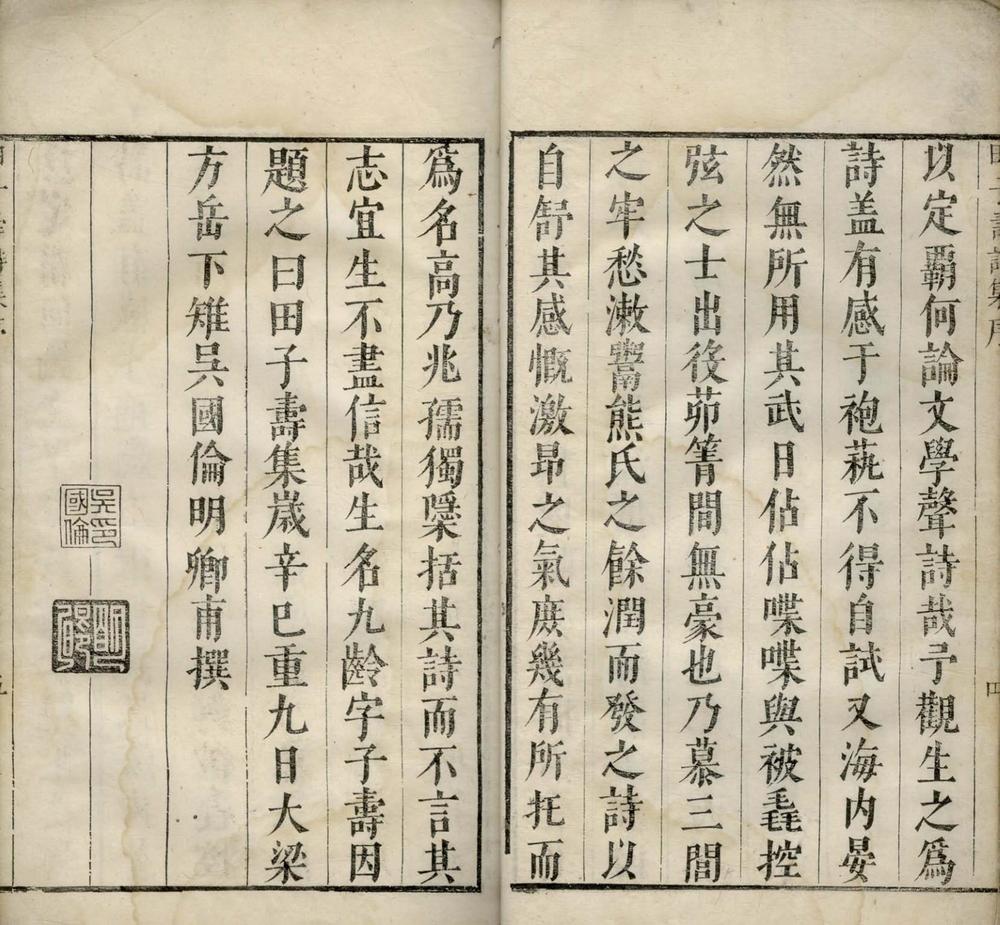 以定覇何論文學聲詩哉予觀生之爲
詩盖有感于袍蓺不得自試又海内晏
然無所用其武日佔佔喋喋與被毳控
弦之士出役茆箐間無豪也乃慕三閭
之牢愁漱鬻熊氏之餘潤而發之詩以
自舒其感慨激昂之氣庶幾有所托而
爲名高乃兆孺獨檃括其詩而不言其
志宜生不盡信哉生名九齡字子壽因
題之曰田子壽集嵗辛巳重九日大梁
方岳下雉吳國倫明卿甫撰
吳國倫印